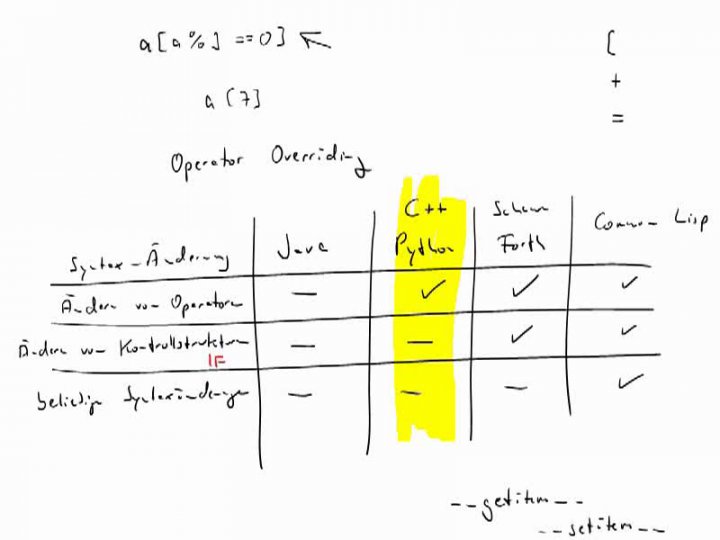 a[a%] ==0]
[
+
=
a[7]
Operator Overriding
Syntax-Änderung
Java
C++
Python
Scheme
Forth
Common Lisp
Ändern von Operatoren
—
✓
✓
✓
Ändern von Kontrollstrukturen
IF
—
—
✓
✓
beliebige Syntaxänderungen
—
—
—
✓
--getitem--
--setitem--